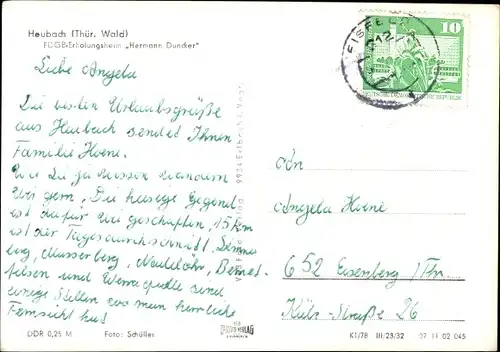 Heubach (Thür. Wald)
FDGB-Erholungsheim „Hermann Duncker"
Liebe Angela
Die besten Urlaubsgrüße
aus Heubach sendet Ihnen
Familie Hoene.
Wie Du ja wissen wandern
wir gern. Die hiesige Gegend
ist dafür wie geschaffen, 15 km
ist der Tagesdurchschnitt. Simms
berg, Masserberg, Neustadt,
felsen und Werraquelle sind
einige Stellen wo man herrliche
Fernsicht hat
DDR 0,25 M
Foto: Schüller
EISFELD
10
DEUTSCHE DEMOKRATISCHE REPUBLIK
An
Angela Hoene
652 Eisenberg/Thr.
Straße 26
K1/78 III/23/32 07 11 02 045